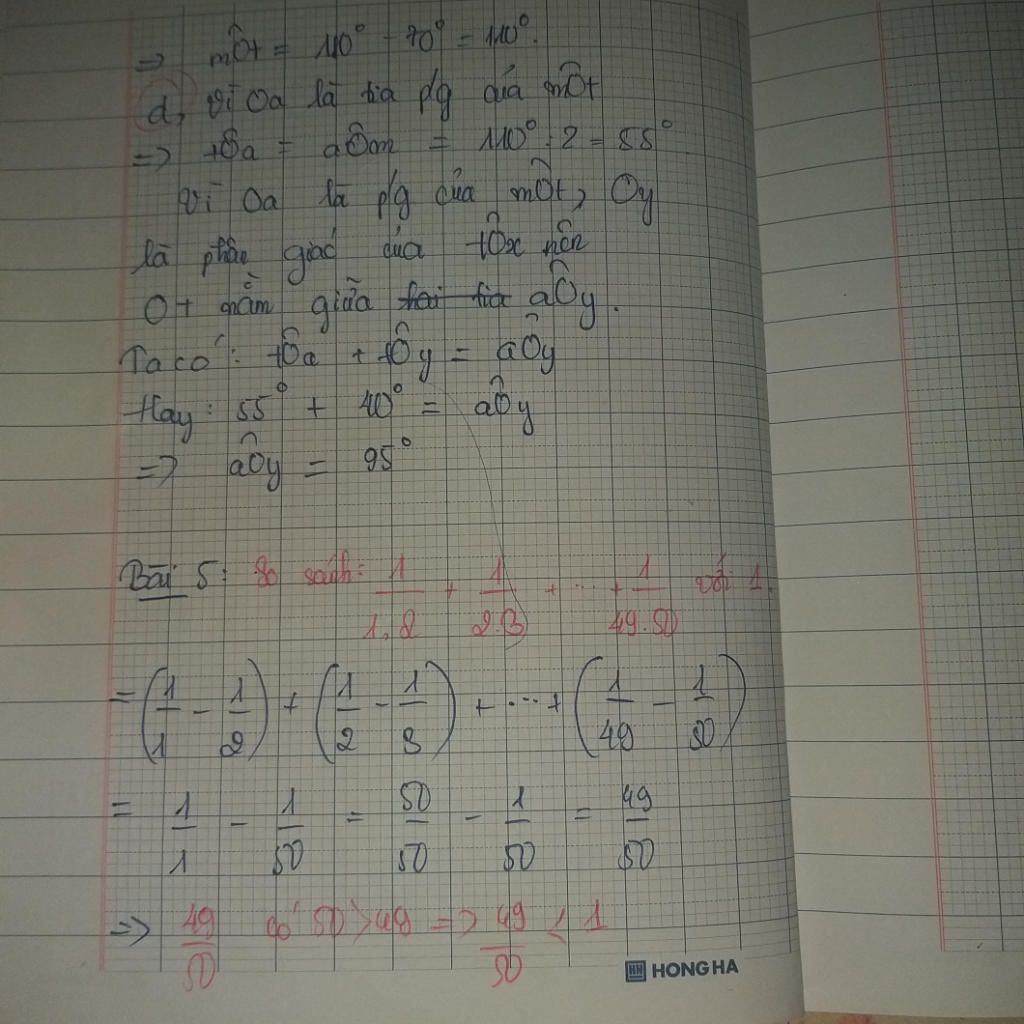 => mÔt = 110° - 70° = 110°.
d, Vì Oa là tia p/g của mÔt
=> tÔa = aÔm = 110° : 2 = 55°
Vì Oa là p/g của mÔt, Oy
là phân giác của tÔx nên
Ot nằm giữa hai tia aÔy.
Ta có: tÔa + tÔy = aÔy
Hay: 55° + 40° = aÔy
=> aÔy = 95°
Bài 5: So sánh: 1/1.2 + 1/2.3 + ... + 1/49.50 với 1.
= (1/1 - 1/2) + (1/2 - 1/3) + ... + (1/49 - 1/50)
= 1/1 - 1/50 = 50/50 - 1/50 = 49/50
=> 49/50 có 50 > 49 => 49/50 < 1
HONG HA